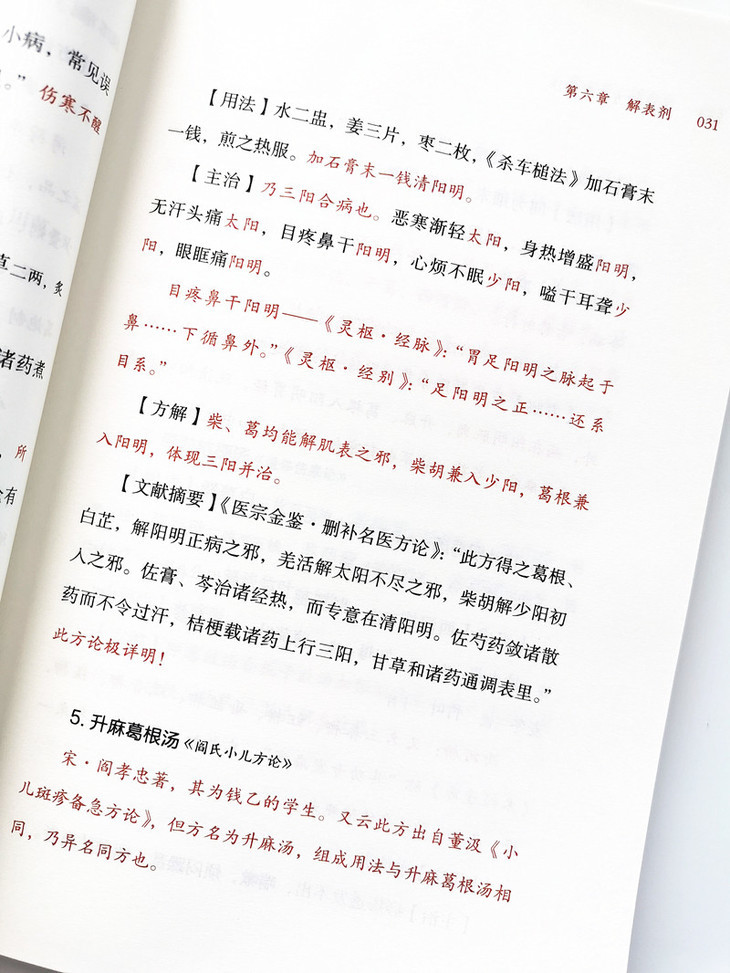 小病，常见误
。”伤寒不醒
直二两，炙
诸药煮
所
含有
第六章 解表剂 031
【用法】水二盅，姜三片，枣二枚，《杀车槌法》加石膏末
一钱，煎之热服。加石膏末一钱清阳明。
【主治】乃三阳合病也。恶寒渐轻太阳，身热增盛阳明，
无汗头痛太阳，目疼鼻干阳明，心烦不眠少阳，嗌干耳聋少
阳，眼眶痛阳明。
目疼鼻干阳明——《灵枢·经脉》：“胃足阳明之脉起于
鼻……下循鼻外。”《灵枢·经别》：“足阳明之正……还系
目系。”
【方解】柴、葛均能解肌表之邪，柴胡兼入少阳，葛根兼
入阳明，体现三阳并治。
【文献摘要】《医宗金鉴·删补名医方论》：“此方得之葛根、
白芷，解阳明正病之邪，羌活解太阳不尽之邪，柴胡解少阳初
入之邪。佐膏、芩治诸经热，而专意在清阳明。佐芍药敛诸散
药而不令过汗，桔梗载诸药上行三阳，甘草和诸药通调表里。”
此方论极详明！
5. 升麻葛根汤《阎氏小儿方论》
宋·阎孝忠著，其为钱乙的学生。又云此方出自董汲《小
儿斑疹备急方论》，但方名为升麻汤，组成用法与升麻葛根汤相
同，乃异名同方也。